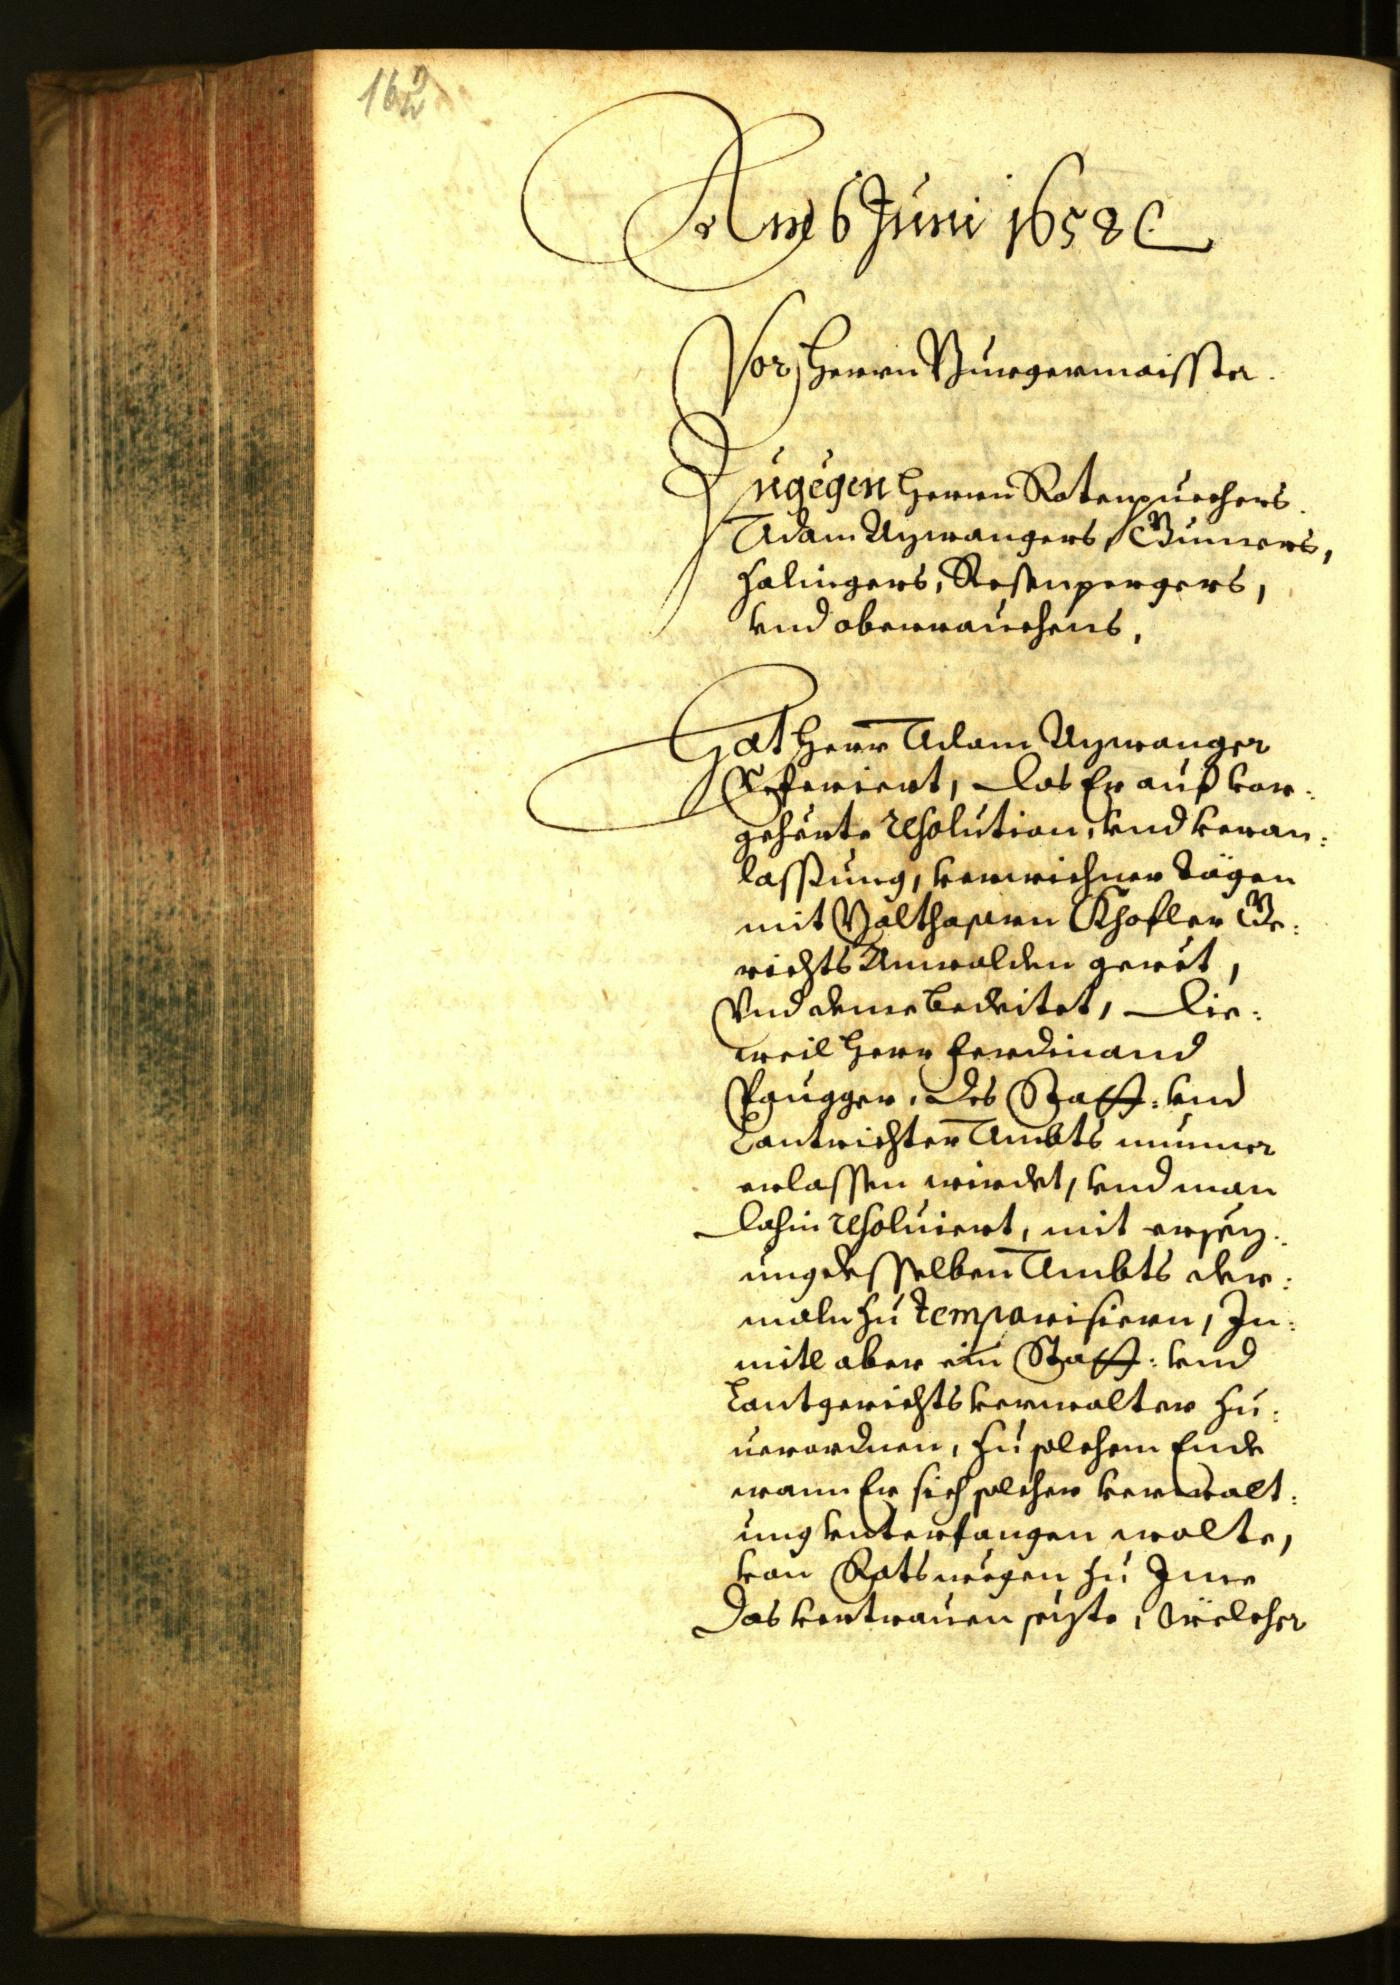 Am 6 Juni 1658
Vor Herrn Burgermaister.
Zugegen Herrn Rotenpuechers.
Adam Uzwangers, Gumers,
Halingers, Rosenpergers,
vnd oberrauchens,
Hat Herr Adam Uzwanger
Referiert, das Er auf vor:
geherte resolution, vnd veran:
lassung, verwichner Tägen
mit Balthasarn Khofler Ge:
richts Anwalden geret,
Vnd deme bedeitet, die:
weil Herr Ferdinand
Paugger, des Statt: vnd
Lantrichter Ambts nunmer
erlassen wirdet, vnd man
dahin resoluiert, mit ersez:
ung desselben Ambts der:
maln zu temporisiern, In:
mitl aber ein Statt: vnd
Lantgerichtsverwalter zu:
uerordnen, zu solchem Ende
wann Er sich solcher verwalt:
ung vnterfangen wolte,
von Rats wegen zu Ime
das vertrauen sezte, Welcher